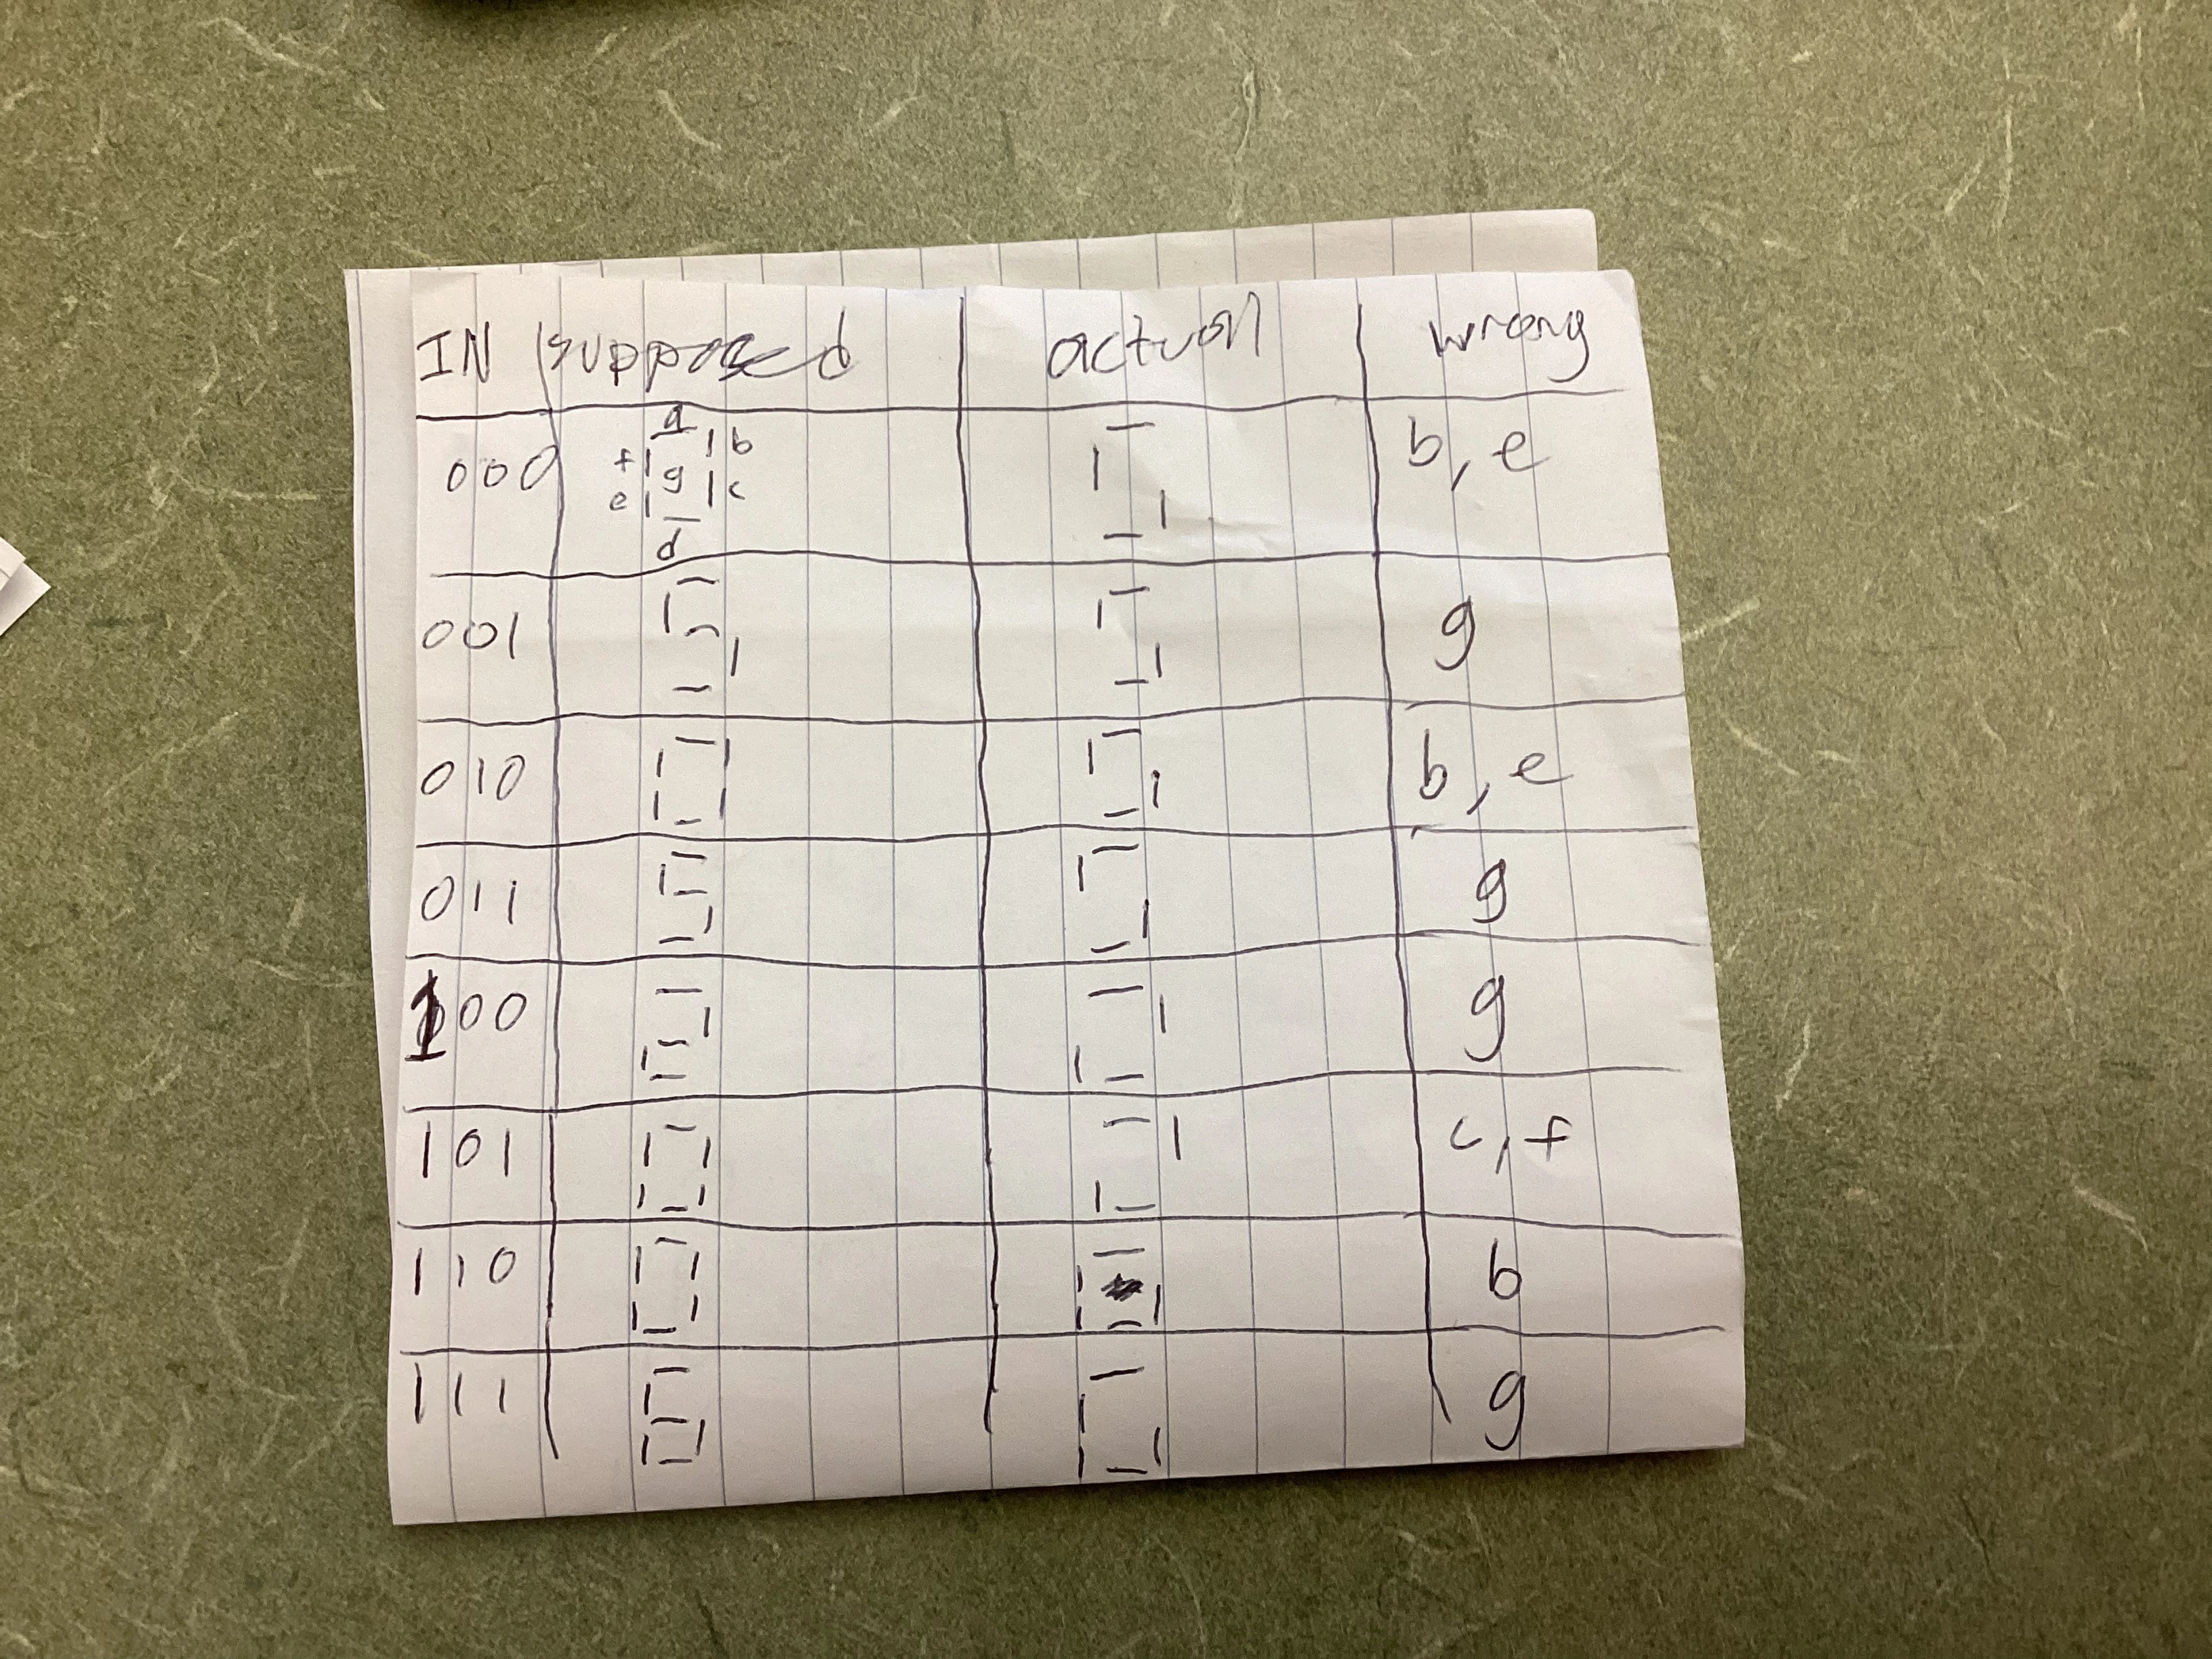 IN supposed actual wrong
000 a f b g e c d b, e
001 g
010 b, e
011 g
100 g
101 c, f
110 b
111 g